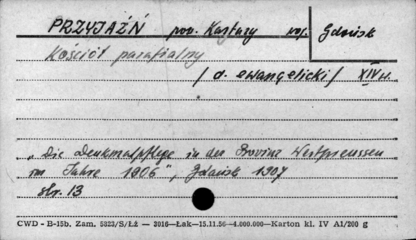 PRZYJAŹŃ pow. Kartuzy woj. Gdańsk
Kościół parafialny
/d. ewangelicki/ XIV w.
"Die Denkmalpflege in der Provinz Westpreussen
im Jahre 1906", Gdańsk 1907
str. 13
CWD - B-15b. Zam. 5823/S/Łż — 3016—Łak—15.11.56—4.000.000—Karton kl. IV A1/200 g